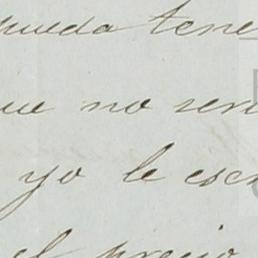 pueda tene
que no seri
yo le esc
el precio